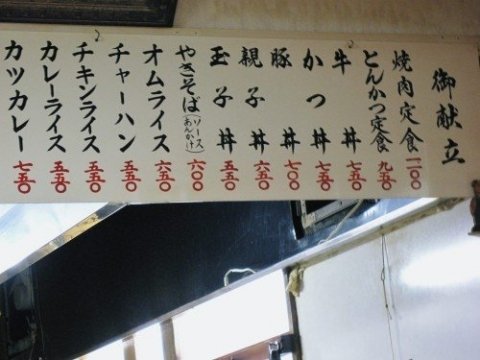 御献立
焼肉定食 一一〇〇
とんかつ定食 九五〇
牛丼 七五〇
かつ丼 七五〇
豚丼 七〇〇
親子丼 六五〇
玉子丼 五五〇
やきそば(ソース あんかけ) 六〇〇
オムライス 六五〇
チャーハン 五五〇
チキンライス 五五〇
カレーライス 五五〇
カツカレー 七五〇